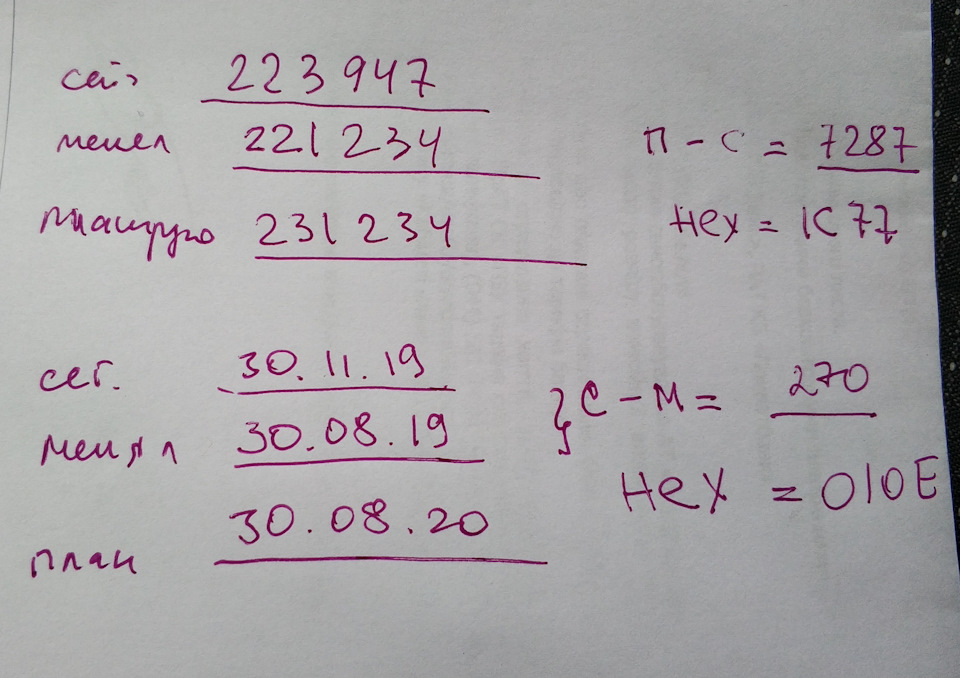 сей> 223 947
менял 221 234
планирую 231 234
П - С = 7287
Hex = 1C77
сег. 30.11.19
менял 30.08.19
план 30.08.20
} С - М = 270
Hex = 010E